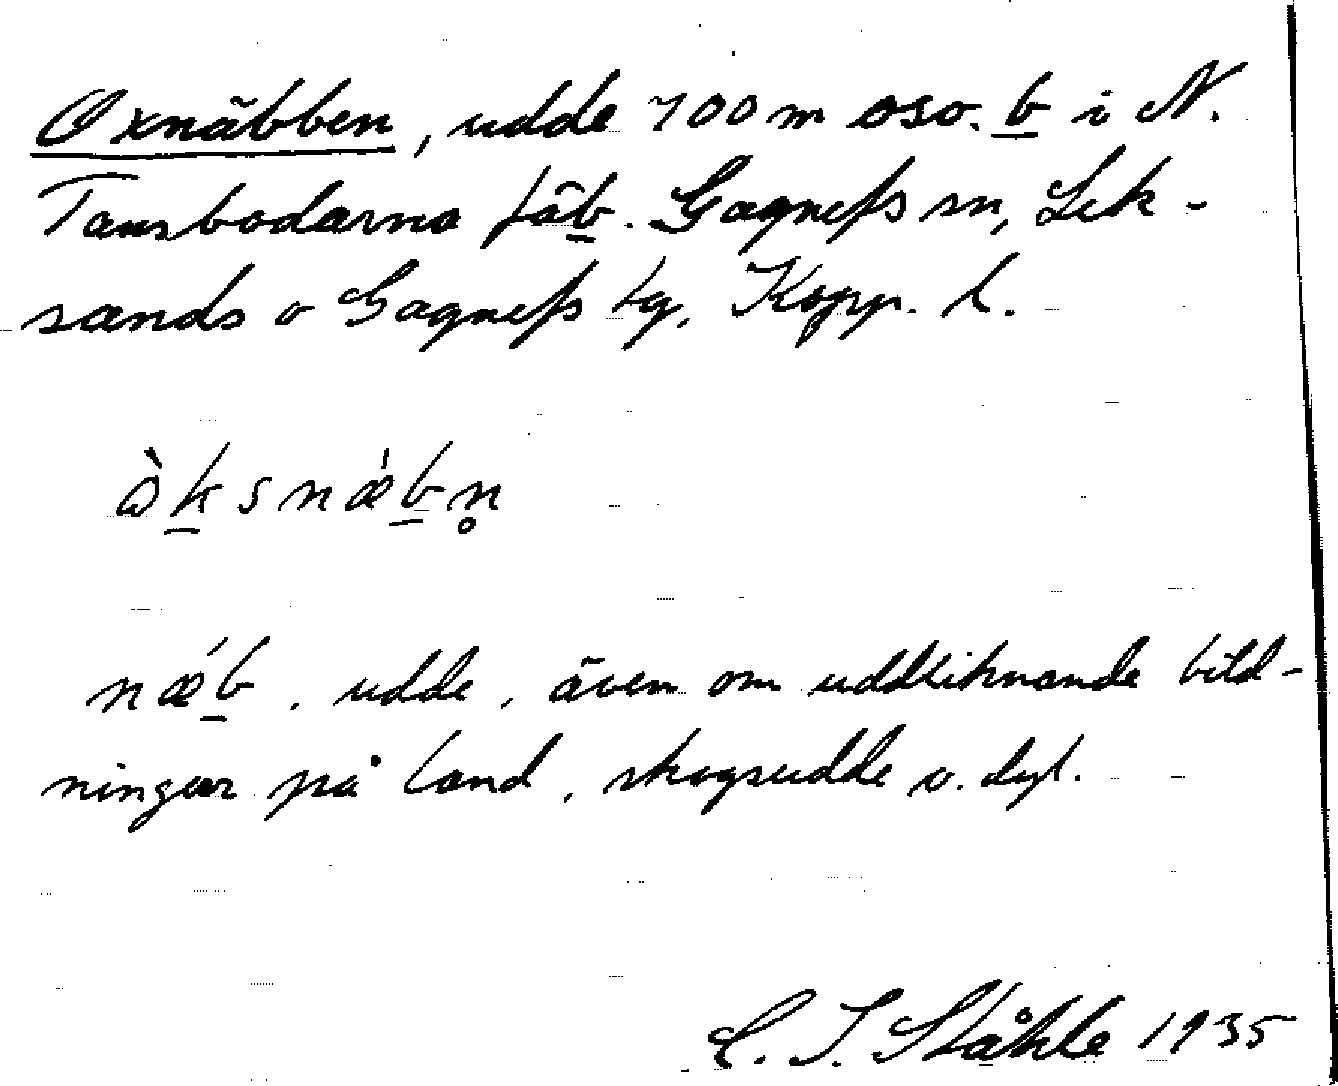 Oxnäbben, udde 700 m oso. b i N.
Tansbodarna fäb. Gagnefs sn, Lek-
sands o Gagnefs tg, Kopp. l.
ὼksnǽbn̥
nǽb, udde, även om uddliknande bild-
ningar på land, skogsudde o. dyl.
C. I. Ståhle 1935